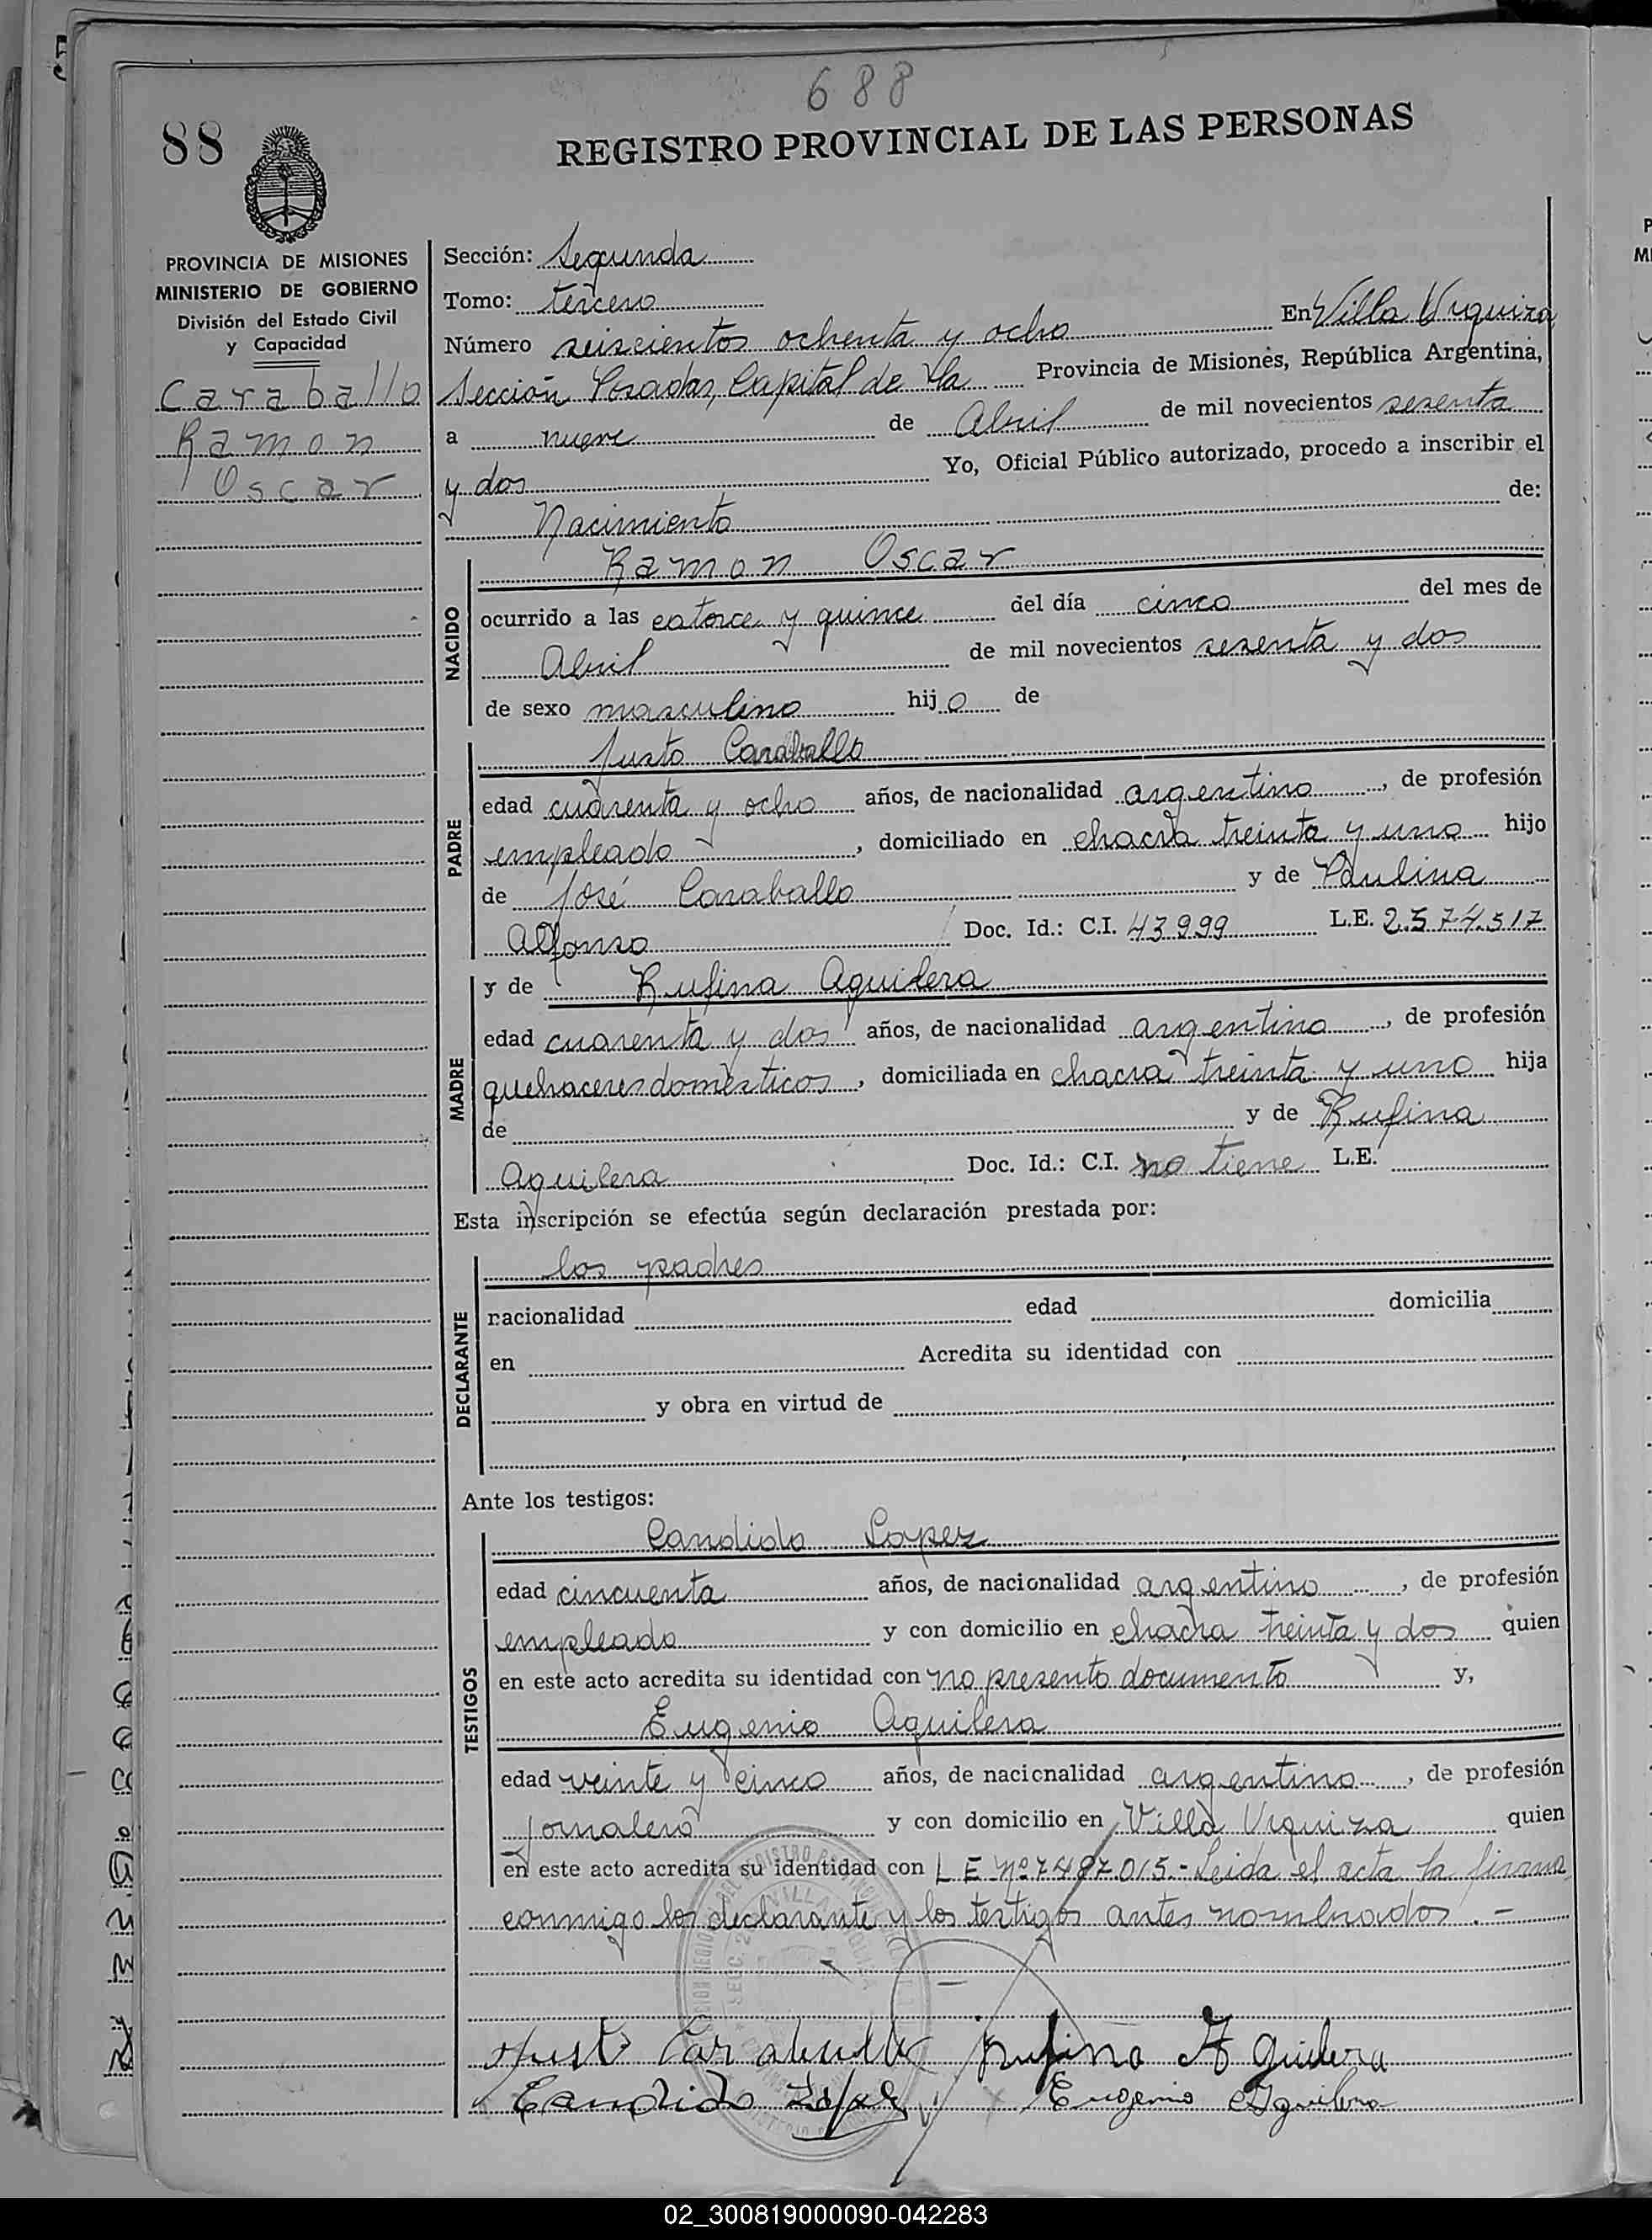 688
88
REGISTRO PROVINCIAL DE LAS PERSONAS
PROVINCIA DE MISIONES
MINISTERIO DE GOBIERNO
División del Estado Civil
y Capacidad
Caraballo
Ramon
Oscar
Sección: Segunda
Tomo: tercero
Número seiscientos ochenta y ocho En Villa Urquiza
Sección Posadas, Capital de la Provincia de Misiones, República Argentina,
a nueve de Abril de mil novecientos sesenta
y dos Yo, Oficial Público autorizado, procedo a inscribir el
Nacimiento de:
NACIDO
Ramon Oscar
ocurrido a las catorce y quince del día cinco del mes de
Abril de mil novecientos sesenta y dos
de sexo masculino hijo de
PADRE
Justo Caraballo
edad cuarenta y ocho años, de nacionalidad argentino, de profesión
empleado, domiciliado en chacra treinta y uno hijo
de José Caraballo y de Paulina
Alfonso Doc. Id.: C.I. 43999 L.E. 2.574.517
MADRE
y de Rufina Aguilera
edad cuarenta y dos años, de nacionalidad argentina, de profesión
quehaceres domésticos, domiciliada en chacra treinta y uno hija
de y de Rufina
Aguilera Doc. Id.: C.I. no tiene L.E.
Esta inscripción se efectúa según declaración prestada por:
DECLARANTE
los padres
nacionalidad edad domicilia
en Acredita su identidad con
y obra en virtud de
Ante los testigos:
TESTIGOS
Candido Lopez
edad cincuenta años, de nacionalidad argentino, de profesión
empleado y con domicilio en chacra treinta y dos quien
en este acto acredita su identidad con no presento documento y,
Eugenio Aguilera
edad veinte y cinco años, de nacionalidad argentino, de profesión
jornalero y con domicilio en Villa Urquiza quien
en este acto acredita su identidad con L.E. Nº 7.487.015.- Leida el acta la firma
conmigo los declarante y los testigos antes nombrados.-
Justo Caraballo Rufina Aguilera
Candido Lopez Eugenio Aguilera
02_300819000090-042283